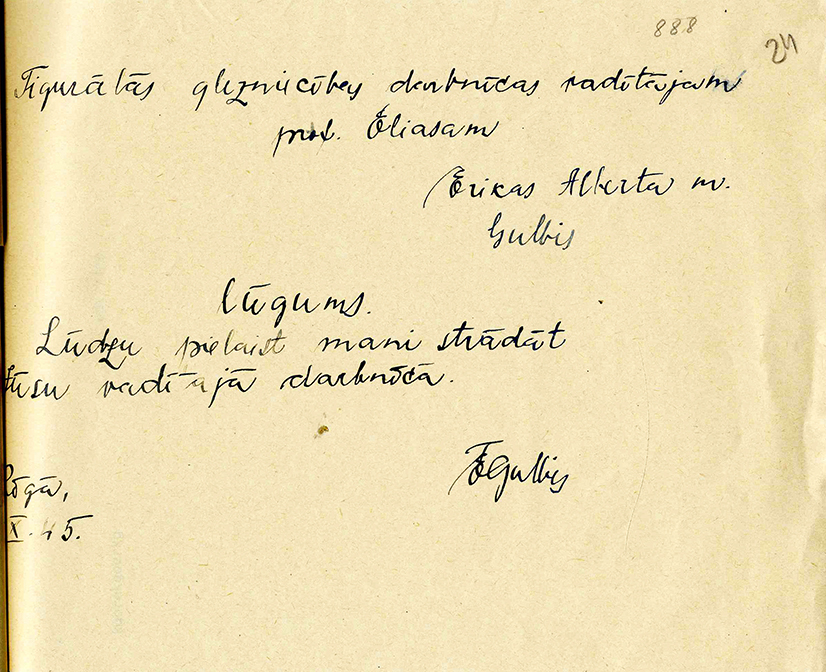 888
24
Figurālās glezniecības darbnīcas vadītājam
prof. Eliasam
Erikas Alberta m.
Gulbis
lūgums.
Lūdzu pielaist mani strādāt
Jūsu vadītajā darbnīcā.
EGulbis
Rīgā,
X. 45.